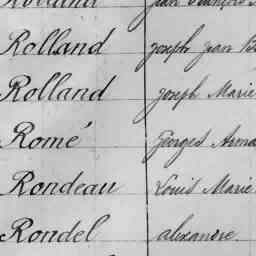 Rolland Joseph Jean
Rolland Joseph Marie
Romé Georges
Rondeau Louis Marie
Rondel alexandre